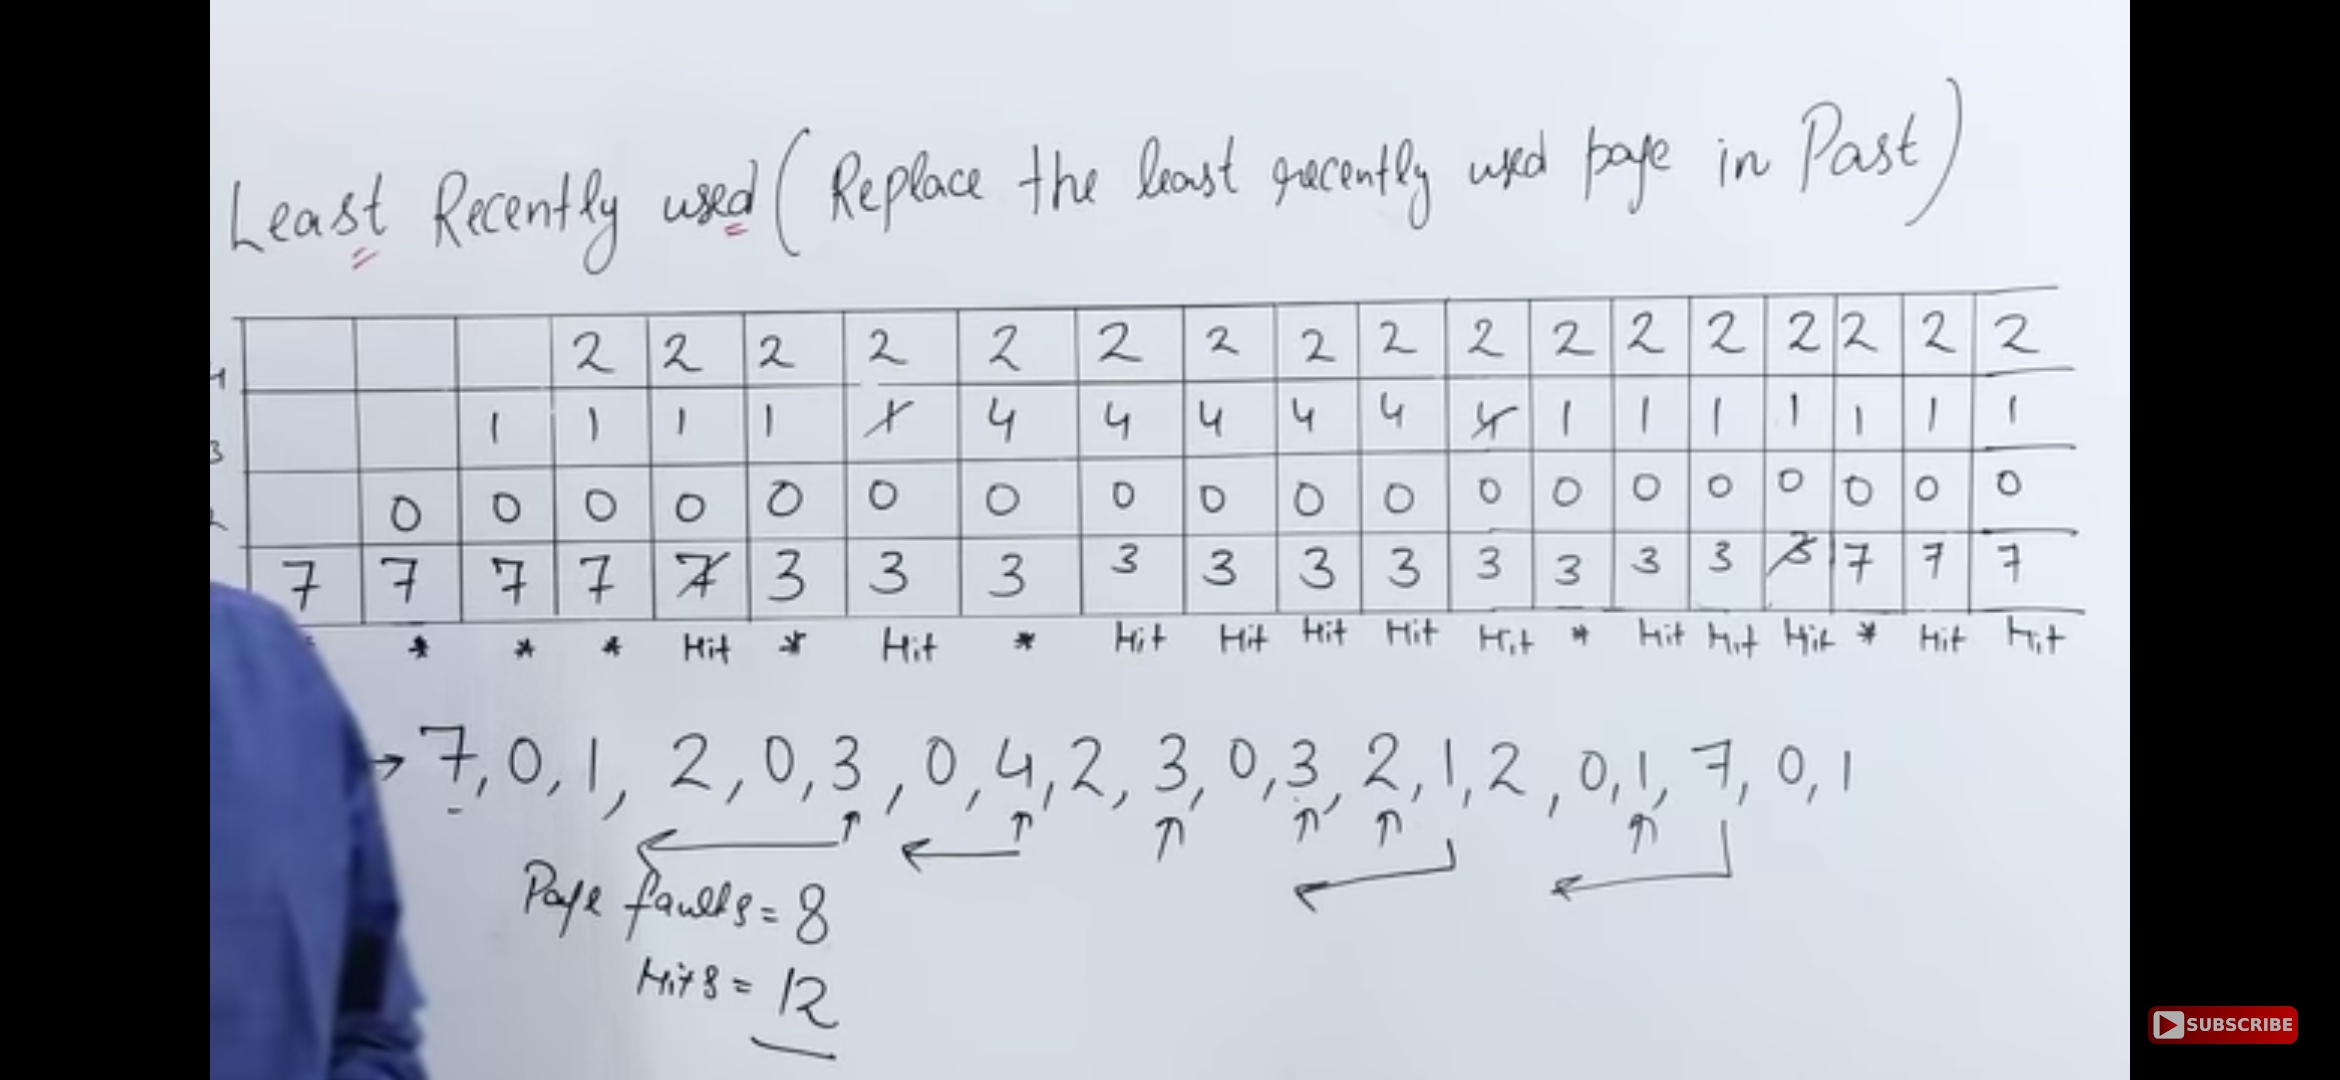 Least Recently used (Replace the least recently used page in Past)
2 2 2 2 2 2 2 2 2 2 2 2 2 2 2 2 2
4 1 1 1 1 1 4 4 4 4 4 4 1 1 1 1 1 1 1
3 0 0 0 0 0 0 0 0 0 0 0 0 0 0 0 0 0 0 0
2 7 7 7 7 7 3 3 3 3 3 3 3 3 3 3 3 3 7 7 7
* * * * Hit * Hit * Hit Hit Hit Hit Hit * Hit Hit Hit * Hit Hit
→ 7, 0, 1, 2, 0, 3, 0, 4, 2, 3, 0, 3, 2, 1, 2, 0, 1, 7, 0, 1
Page faults = 8
Hits = 12
SUBSCRIBE